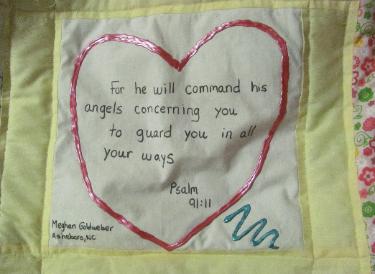 For he will command his
angels concerning you
to guard you in all
your ways
Psalm
91:11
Meghan Goldweber
Asheboro, NC